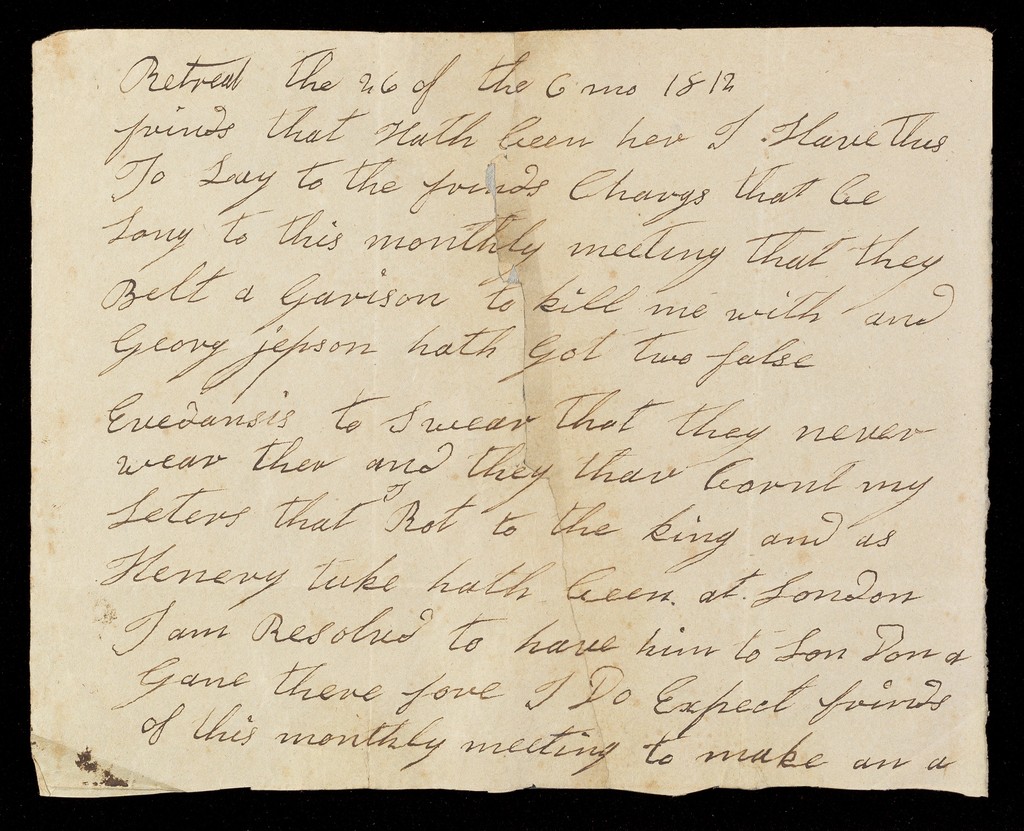 Retreat the 26 of the 6 mo 1812
frinds that Hath been her I Have this
To Lay to the frinds Chargs that be
Long to this monthly meeting that they
Belt a Garison to kill me with and
Georg jepson hath Got two false
Evedansis to Swear that they never
wear ther and they thar bornt my
Leters that I Rot to the king and as
Henery tuke hath been at London
I am Resolvd to have him to Lon Don a
Gane there fore I Do Expect frinds
of this monthly meeting to make an a